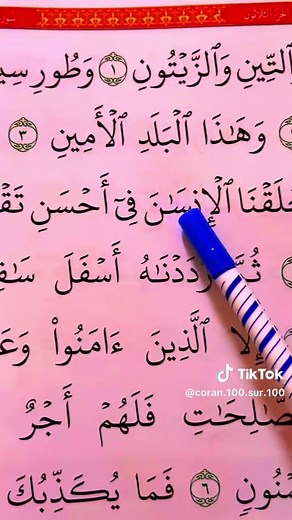 ٱلتِّينِ وَٱلزَّيْتُونِ ١ وَطُورِ سِي
وَهَٰذَا ٱلْبَلَدِ ٱلْأَمِينِ ٣
خَلَقْنَا ٱلْإِنسَٰنَ فِىٓ أَحْسَنِ تَقْ
ثُمَّ رَدَدْنَٰهُ أَسْفَلَ سَٰفِ
إِلَّا ٱلَّذِينَ ءَامَنُوا۟ وَعَ
لصَّٰلِحَٰتِ فَلَهُمْ أَجْرٌ
مْنُونٍ ٦ فَمَا يُكَذِّبُكَ
TikTok
@coran.100.sur.100